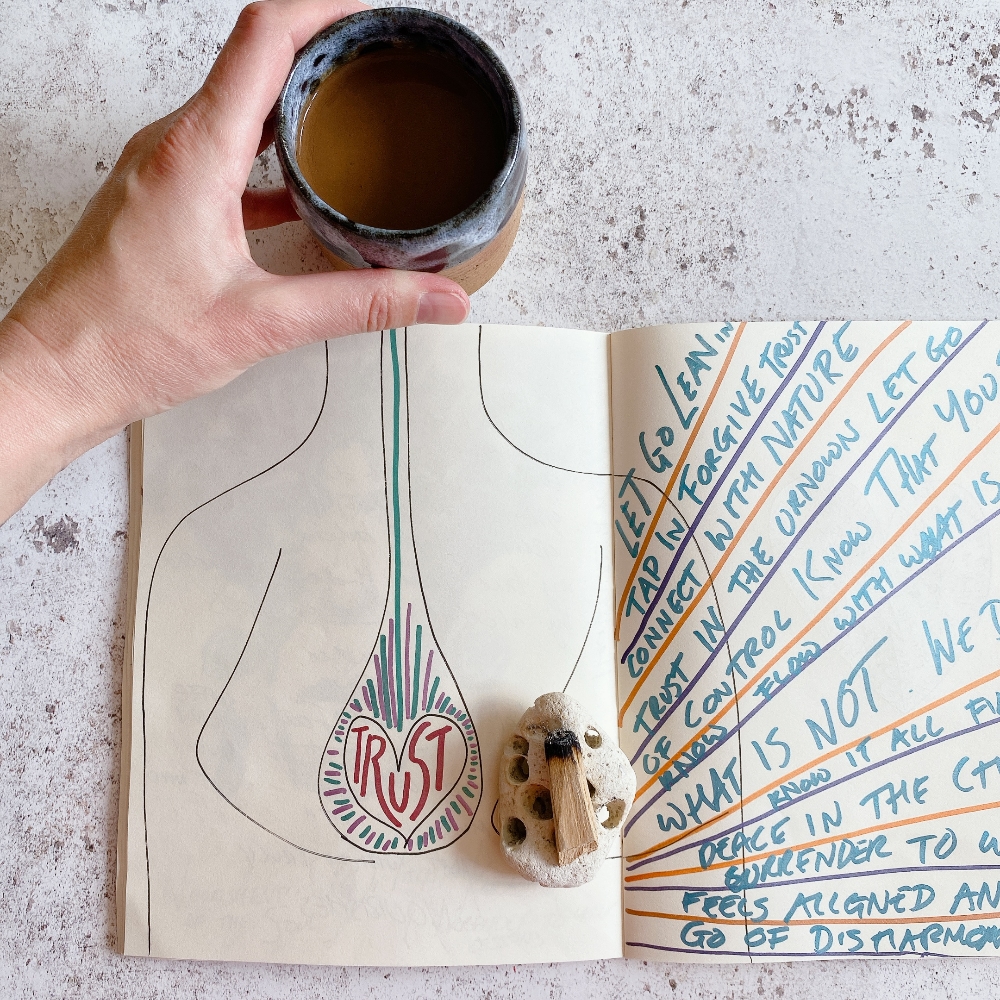 TRUST
LET GO LEAN IN
TAP IN FORGIVE TRUST
CONNECT WITH NATURE
TRUST IN THE UKNOWN LET GO
OF CONTROL KNOW THAT YOU
KNOW FLOW WITH WHAT IS
WHAT IS NOT WE
KNOW IT ALL
PEACE IN THE
SURRENDER TO
FEELS ALIGNED
GO OF